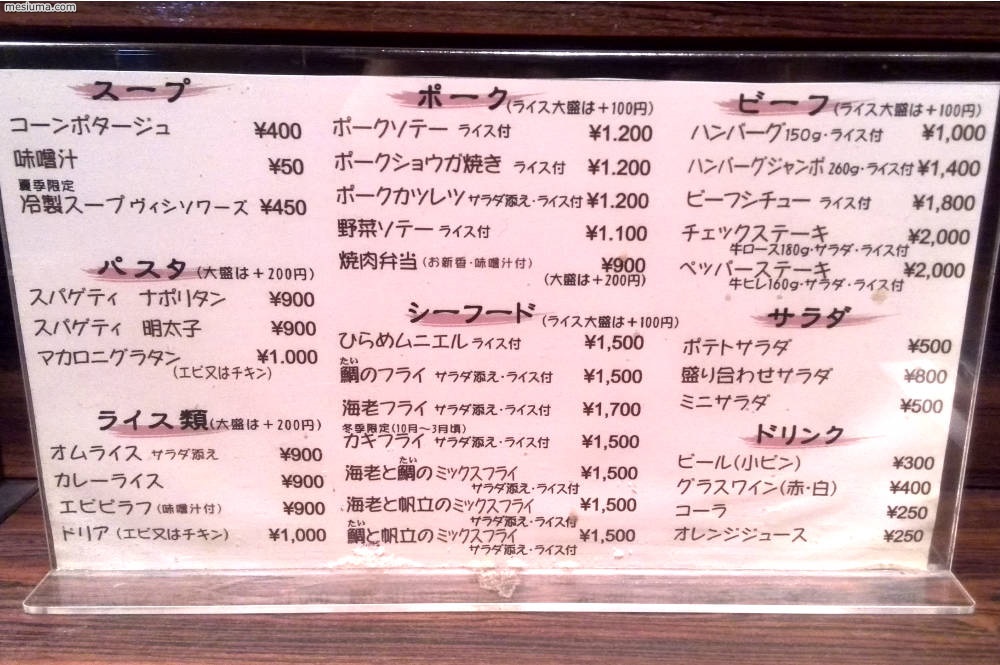 mesiuma.com
スープ
コーンポタージュ ¥400
味噌汁 ¥50
夏季限定
冷製スープ ヴィシソワーズ ¥450
パスタ (大盛は+200円)
スパゲティ ナポリタン ¥900
スパゲティ 明太子 ¥900
マカロニグラタン ¥1.000
(エビ又はチキン)
ライス類 (大盛は+200円)
オムライス サラダ添え ¥900
カレーライス ¥900
エビピラフ (味噌汁付) ¥900
ドリア (エビ又はチキン) ¥1,000
ポーク (ライス大盛は+100円)
ポークソテー ライス付 ¥1.200
ポークショウガ焼き ライス付 ¥1.200
ポークカツレツ サラダ添え・ライス付 ¥1.200
野菜ソテー ライス付 ¥1.100
焼肉弁当 (お新香・味噌汁付) ¥900
(大盛は+200円)
シーフード (ライス大盛は+100円)
ひらめムニエル ライス付 ¥1,500
たい
鯛のフライ サラダ添え・ライス付 ¥1,500
海老フライ サラダ添え・ライス付 ¥1,700
冬季限定(10月〜3月頃)
カキフライ サラダ添え・ライス付 ¥1,500
たい
海老と鯛のミックスフライ ¥1,500
サラダ添え・ライス付
海老と帆立のミックスフライ ¥1,500
サラダ添え・ライス付
たい
鯛と帆立のミックスフライ ¥1,500
サラダ添え・ライス付
ビーフ (ライス大盛は+100円)
ハンバーグ150g・ライス付 ¥1,000
ハンバーグジャンボ 260g・ライス付 ¥1,400
ビーフシチュー ライス付 ¥1,800
チェックステーキ ¥2,000
牛ロース180g・サラダ・ライス付
ペッパーステーキ ¥2,000
牛ヒレ160g・サラダ・ライス付
サラダ
ポテトサラダ ¥500
盛り合わせサラダ ¥800
ミニサラダ ¥500
ドリンク
ビール(小ビン) ¥300
グラスワイン(赤・白) ¥400
コーラ ¥250
オレンジジュース ¥250